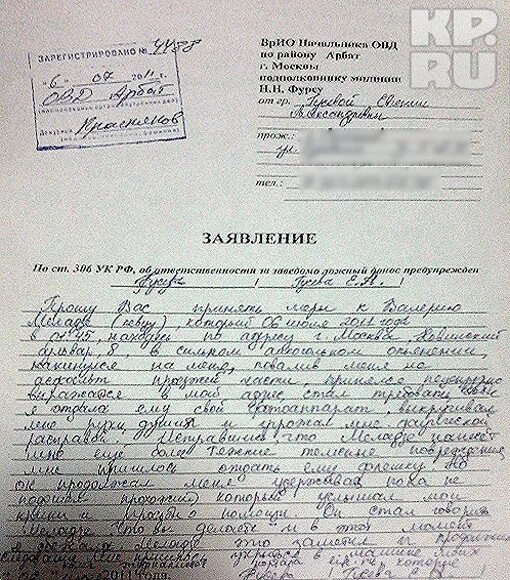 KP.
RU
ЗАРЕГИСТРИРОВАНО № 4488
"6" 07 2011 г.
ОВД Арбат
Краснянов
ВрИО Начальника ОВД
по району Арбат
г. Москвы
подполковнику милиции
Н.Н. Фурсу
от гр. Гусевой Евгении
Александровн
прож.:
ул.
тел.:
ЗАЯВЛЕНИЕ
По ст. 306 УК РФ, об ответственности за заведомо ложный донос предупрежден
Гусева / Гусева Е.А. /
Прошу Вас принять меры к Валерию
Меладзе (певцу), который 06 июля 2011 года
в 04:45, находясь по адресу г. Москва, Новинский
бульвар, 8, в сильном алкогольном опьянении,
накинулся на меня, повалив меня на
асфальт проезжей части, принялся нецензурно
выражаться в мой адрес, стал требовать, чтобы
я отдала ему свой фотоаппарат, выкручивал
мне руки, душил и угрожал мне физической
расправой. Испугавшись что Меладзе нанесет
мне еще более тяжкие телесные повреждения,
мне пришлось отдать ему флешку. Но
он продолжал меня удерживать пока не
подошел прохожий, который услышал мои
крики и просьбы о помощи. Он стал говорить
Меладзе, "что вы делаете" и в этот момент
я Меладзе это заметил и
укрылся в машине моих
которые
2011 года Гусева Гусева Е.А.